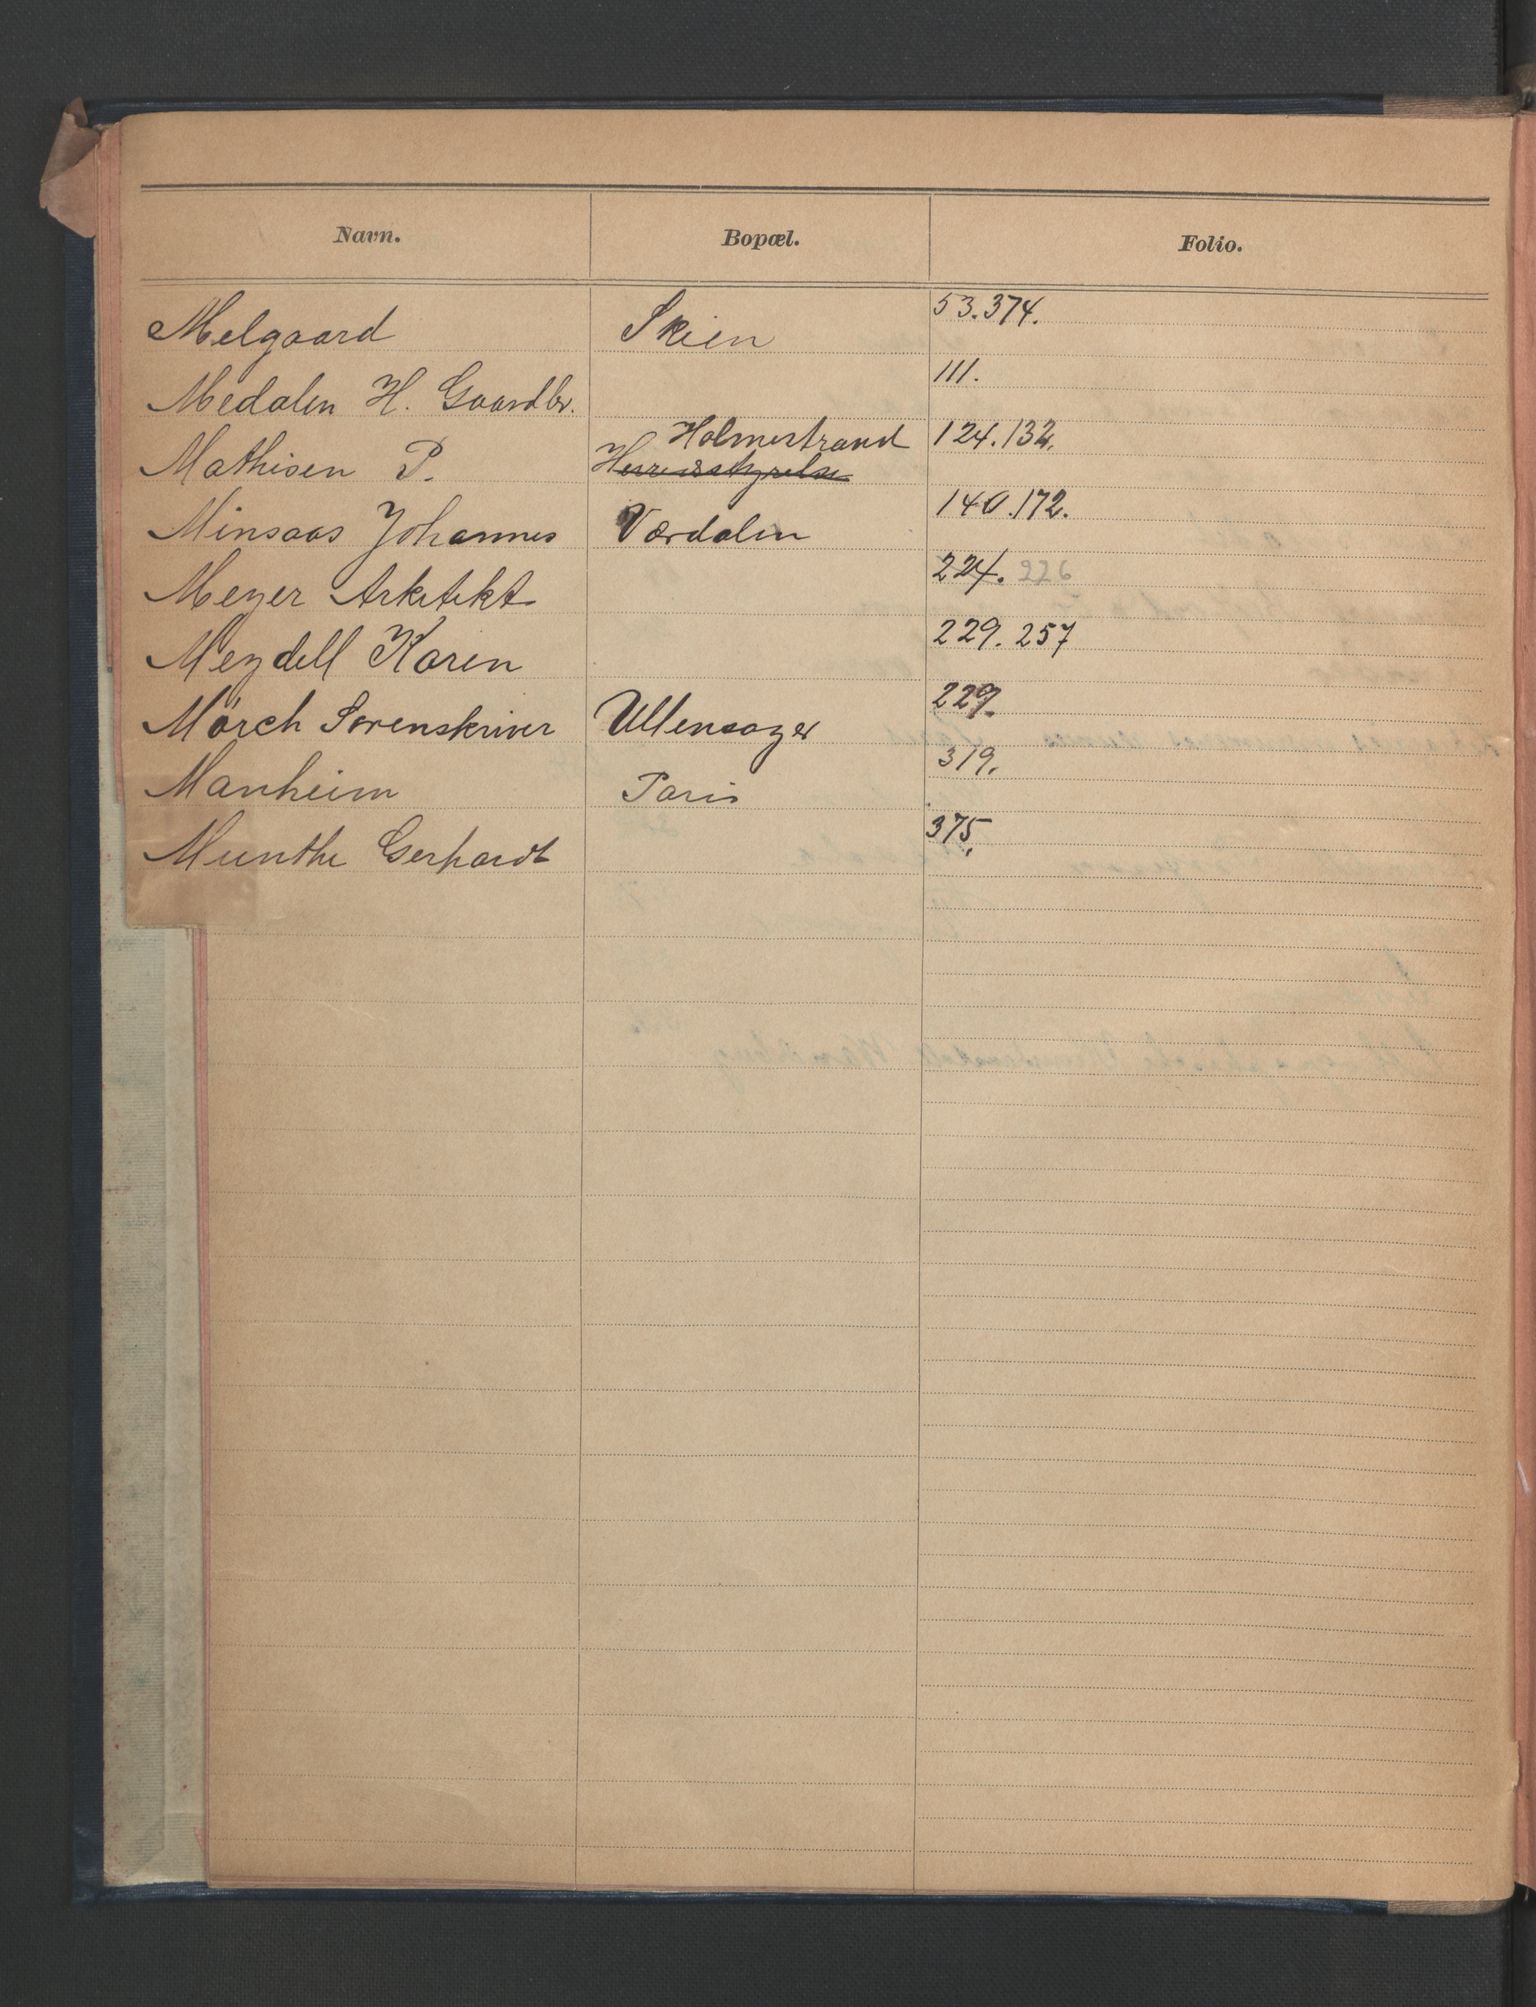 Navn. Bopæl. Folio.
Melgaard Skien 53.374.
Medalen H. Gaardbr. 111.
Holmestrand
Mathisen P. Herredsstyrelse 124.132.
Minsaas Johannes Værdalen 140.172.
Meyer Arkitekt 224. 226
Meydell Karen 229. 257
Mörch Sorenskriver Ullensager 229.
Manheim Paris 319.
Munthe Gerhardt 375.